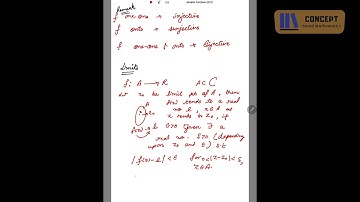 Remark
f one-one → Injective
f onto → Surjective
f one-one & onto → Bijective
Limits
f: A → R A ⊂ C
Let z0 be limit pt of A, then
f(z) tends to a real
no l, z ∈ A as
z tends to z0, if
f(z) → l
given ∃ a
real no. δ>0 (depending
upon z0 and ε) s.t
|f(z) - l| < ε for 0<|z-z0|<δ,
z ∈ A.
CONCEPT